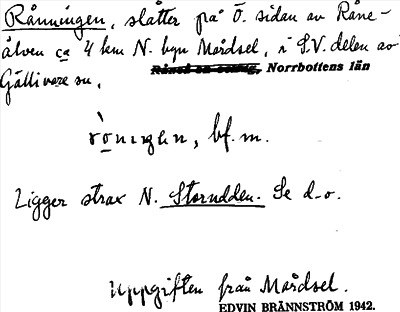 Rånningen, slåtter på Ö. sidan av Råne-
älven ca 4 km N. byn Mårdsel, i S.V. delen av
Råneå sn. Norrbottens län
Gällivare sn.
rònıŋən, bf. m.
Ligger strax N. Storudden. Se d-o.
Uppgiften från Mårdsel.
EDVIN BRÄNNSTRÖM 1942.